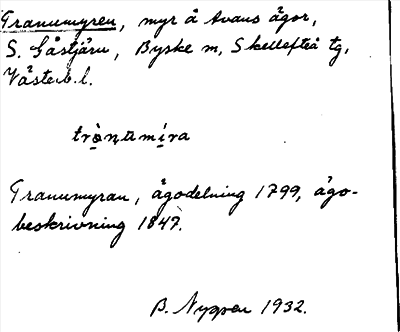 Tranumyren, myr å Avans ägor,
S. Gåstjärn, Byske sn, Skellefteå tg,
Västerb. l.
trà̱namí̱ra
Tranumyran, ägodelning 1799, ägo-
beskrivning 1847.
B. 1932.